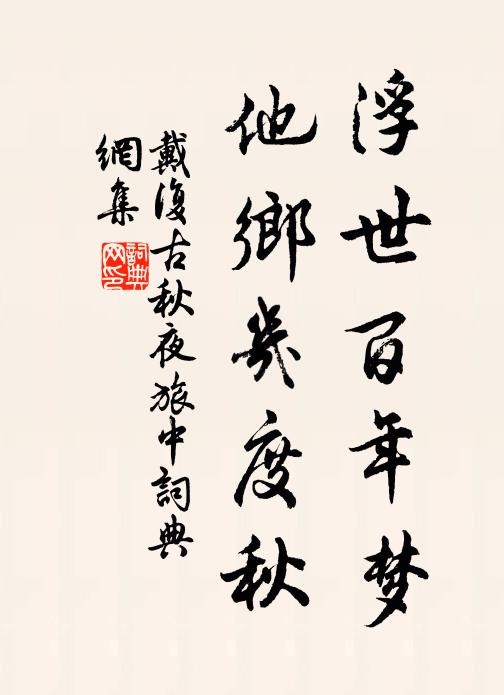 浮世百年梦
他鄉幾度秋
戴復古秋夜旅中詞典
網集
詞典
网印